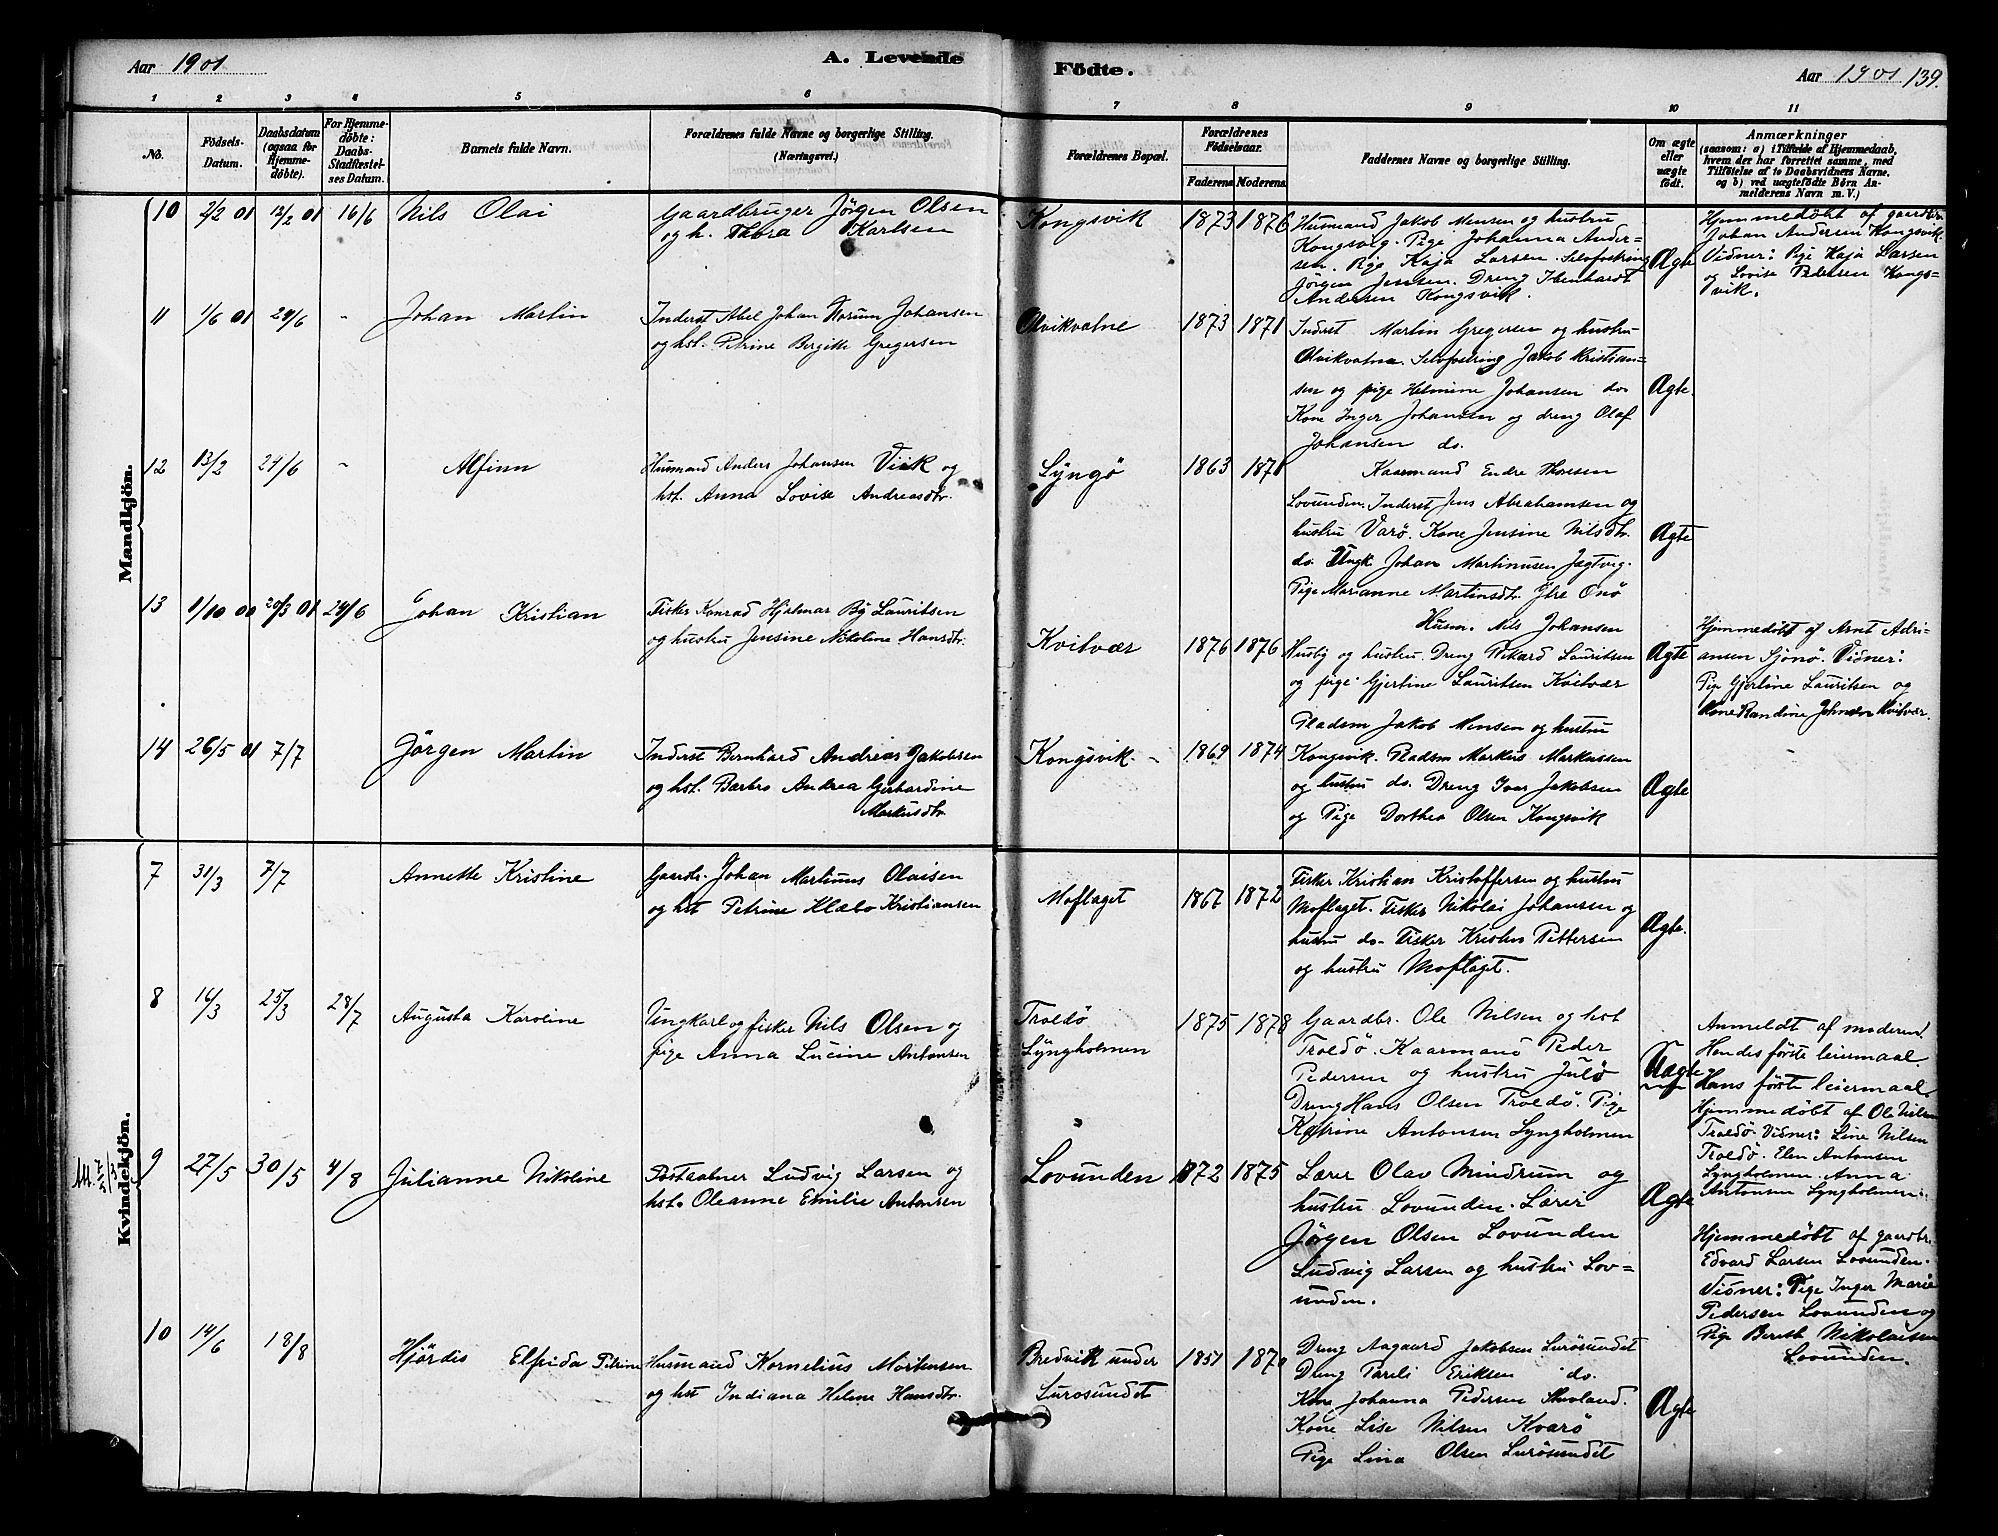 Aar 1901
A. Levende
Födte.
Aar 1901 139.
1 2 3 4 5 6 7 8 9 10 11
No.
Födsels-
Datum.
Daabsdatum
(ogsaa for
Hjemme-
döbte).
For Hjemme-
döbte:
Daabs-
Stadfæstel-
ses Datum.
Barnets fulde Navn.
Forældrenes fulde Navne og borgerlige Stilling.
(Næringsvei.)
Forældrenes Bopæl.
Forældrenes
Födselsaar.
Faderens Moderens
Faddernes Navne og borgerlige Stilling.
Om ægte
eller
uægte
födt.
Anmærkninger
(saasom: a) i Tilfælde af Hjemmedaab,
hvem der har forrettet samme, med
Tilföielse af to Daabsvidners Navne,
og b) ved uægtefödte Börn An-
melderens Navn m. V.)
Mandkjön.
10 2/2 01 12/2 01 16/6 Nils Olai
Gaardbruger Jörgen Olsen
og h. Thora Karlsen
Kongsvik 1873 1876
Husmand Jakob Mensen og hustru
Kongsvig. Pige Johanna Ander-
sen. Pige Kaja Larsen. Selvfostring
Jörgen Jensen. Dreng Ibenhardt
Andersen Kongsvik.
Ægte
Hjemmedöbt af gaardbr.
Johan Andersen Kongsvik.
Vidner: Pige Kaja Larsen
og Lovise Pedersen Kongs-
vik.
11 1/6 01 24/6 - Johan Martin
Inderst Abel Johan Norum Johansen
og hst. Petrine Bergitte Gregersen
Olvikvatne 1873 1871
Inderst Martin Gregersen og hustru
Olvikvatne. Selvfostring Jakob Kristian-
sen og pige Helmine Johansen do
Kone Inger Johansen og dreng Olaf
Johansen do.
Ægte.
12 13/2 24/6 - Alfinn
Husmand Anders Johansen Viik og
hst. Anna Lovise Andreasdtr.
Lyngö 1863 1871
Kaarmand Endre Thoresen
Lovunden. Inderst Jens Abrahamsen og
hustru Varö. Kone Jensine Nilsdtr.
do. Ungk. Johan Martinusen Jagtvig.
Pige Marianne Martinsdtr. Ytre Onö
Ægte
13 1/10 00 20/3 01 24/6 Johan Kristian
Fisker Konrad Hjalmar By Lauritsen
og hustru Jensine Nikoline Hansdtr.
Kvitvær 1876 1876
Husm. Nils Johansen
Husby og hustru. Dreng Rikard Lauritsen
og pige Gjertine Lauritsen Kvitvær
Ægte
Hjemmedöbt af Arnt Adri-
ansen Sjonö. Vidner:
Pige Gjertine Lauritsen og
Kone Randine Johnsen Kvitvær.
14 26/5 01 7/7 Jörgen Martin
Inderst Bernhard Andreas Jakobsen
og hst. Barbro Andrea Gerhardine
Markusdtr.
Kongsvik - 1869 1874
Pladsm Jakob Mensen og hustru
Kongsvik. Pladsm Markus Markussen
og hustru do. Dreng Ivar Jakobsen
og Pige Dorthea Olsen Kongsvik
Ægte
Kvindekjön.
7 31/3 7/7 Annette Kristine
Gaardbr. Johan Martinus Olaisen
og hst Petrine Klæbo Kristiansen
Moflaget 1867 1872
Fisker Kristian Kristoffersen og hustru
Moflaget. Fisker Nikolai Johansen og
hustru do. Fisker Kristen Pettersen
og hustru Moflaget.
Ægte.
8 16/3 25/3 28/7 Augusta Karoline
Ungkarl og fisker Nils Olsen og
pige Anna Lucine Antonsen
Troldö
Lyngholmen
1875 1878
Gaardbr. Ole Nilsen og hst
Troldö. Kaarmand Peder
Pedersen og hustru Julö
Dreng Hans Olsen Troldö. Pige
Katrine Antonsen Lyngholmen
Uægte
Anmeldt af moderen.
Hendes förste leiermaal
Hans förste leiermaal
Hjemmedöbt af Ole Nilsen
Troldö. Vidner: Line Nilsen
Troldö. Elen Antonsen
Lyngholmen. Anna
Antonsen Lyngholmen.
9 27/5 30/5 4/8 Julianne Nikoline
Postaabner Ludvig Larsen og
hst. Oleanne Emilie Antonsen
Lovunden 1872 1875
Lærer Olav Mindrum og
hustru Lovunden. Lærer
Jörgen Olsen Lovunden
Ludvig Larsen og hustru Lov-
unden.
Ægte
Hjemmedöbt af gaardbr.
Edvard Larsen Lovunden.
Vidner: Pige Inger Marie
Pedersen Lovunden og
Pige Bereth Nikolaisen
Lovunden.
10 14/6 18/8 Hjördis Elfrida Petrine
Husmand Kornelius Mortensen
og hst Indiana Helene Hansdtr.
Bredvik under
Lurosundet
1851
Dreng Aagaard Jakobsen Lurösundet
Dreng Pareli Eriksen do.
Kone Johanna Pedersen
Kone Lise Nilsen Kvarö
Pige Lina Olsen Lurösundet
Ægte